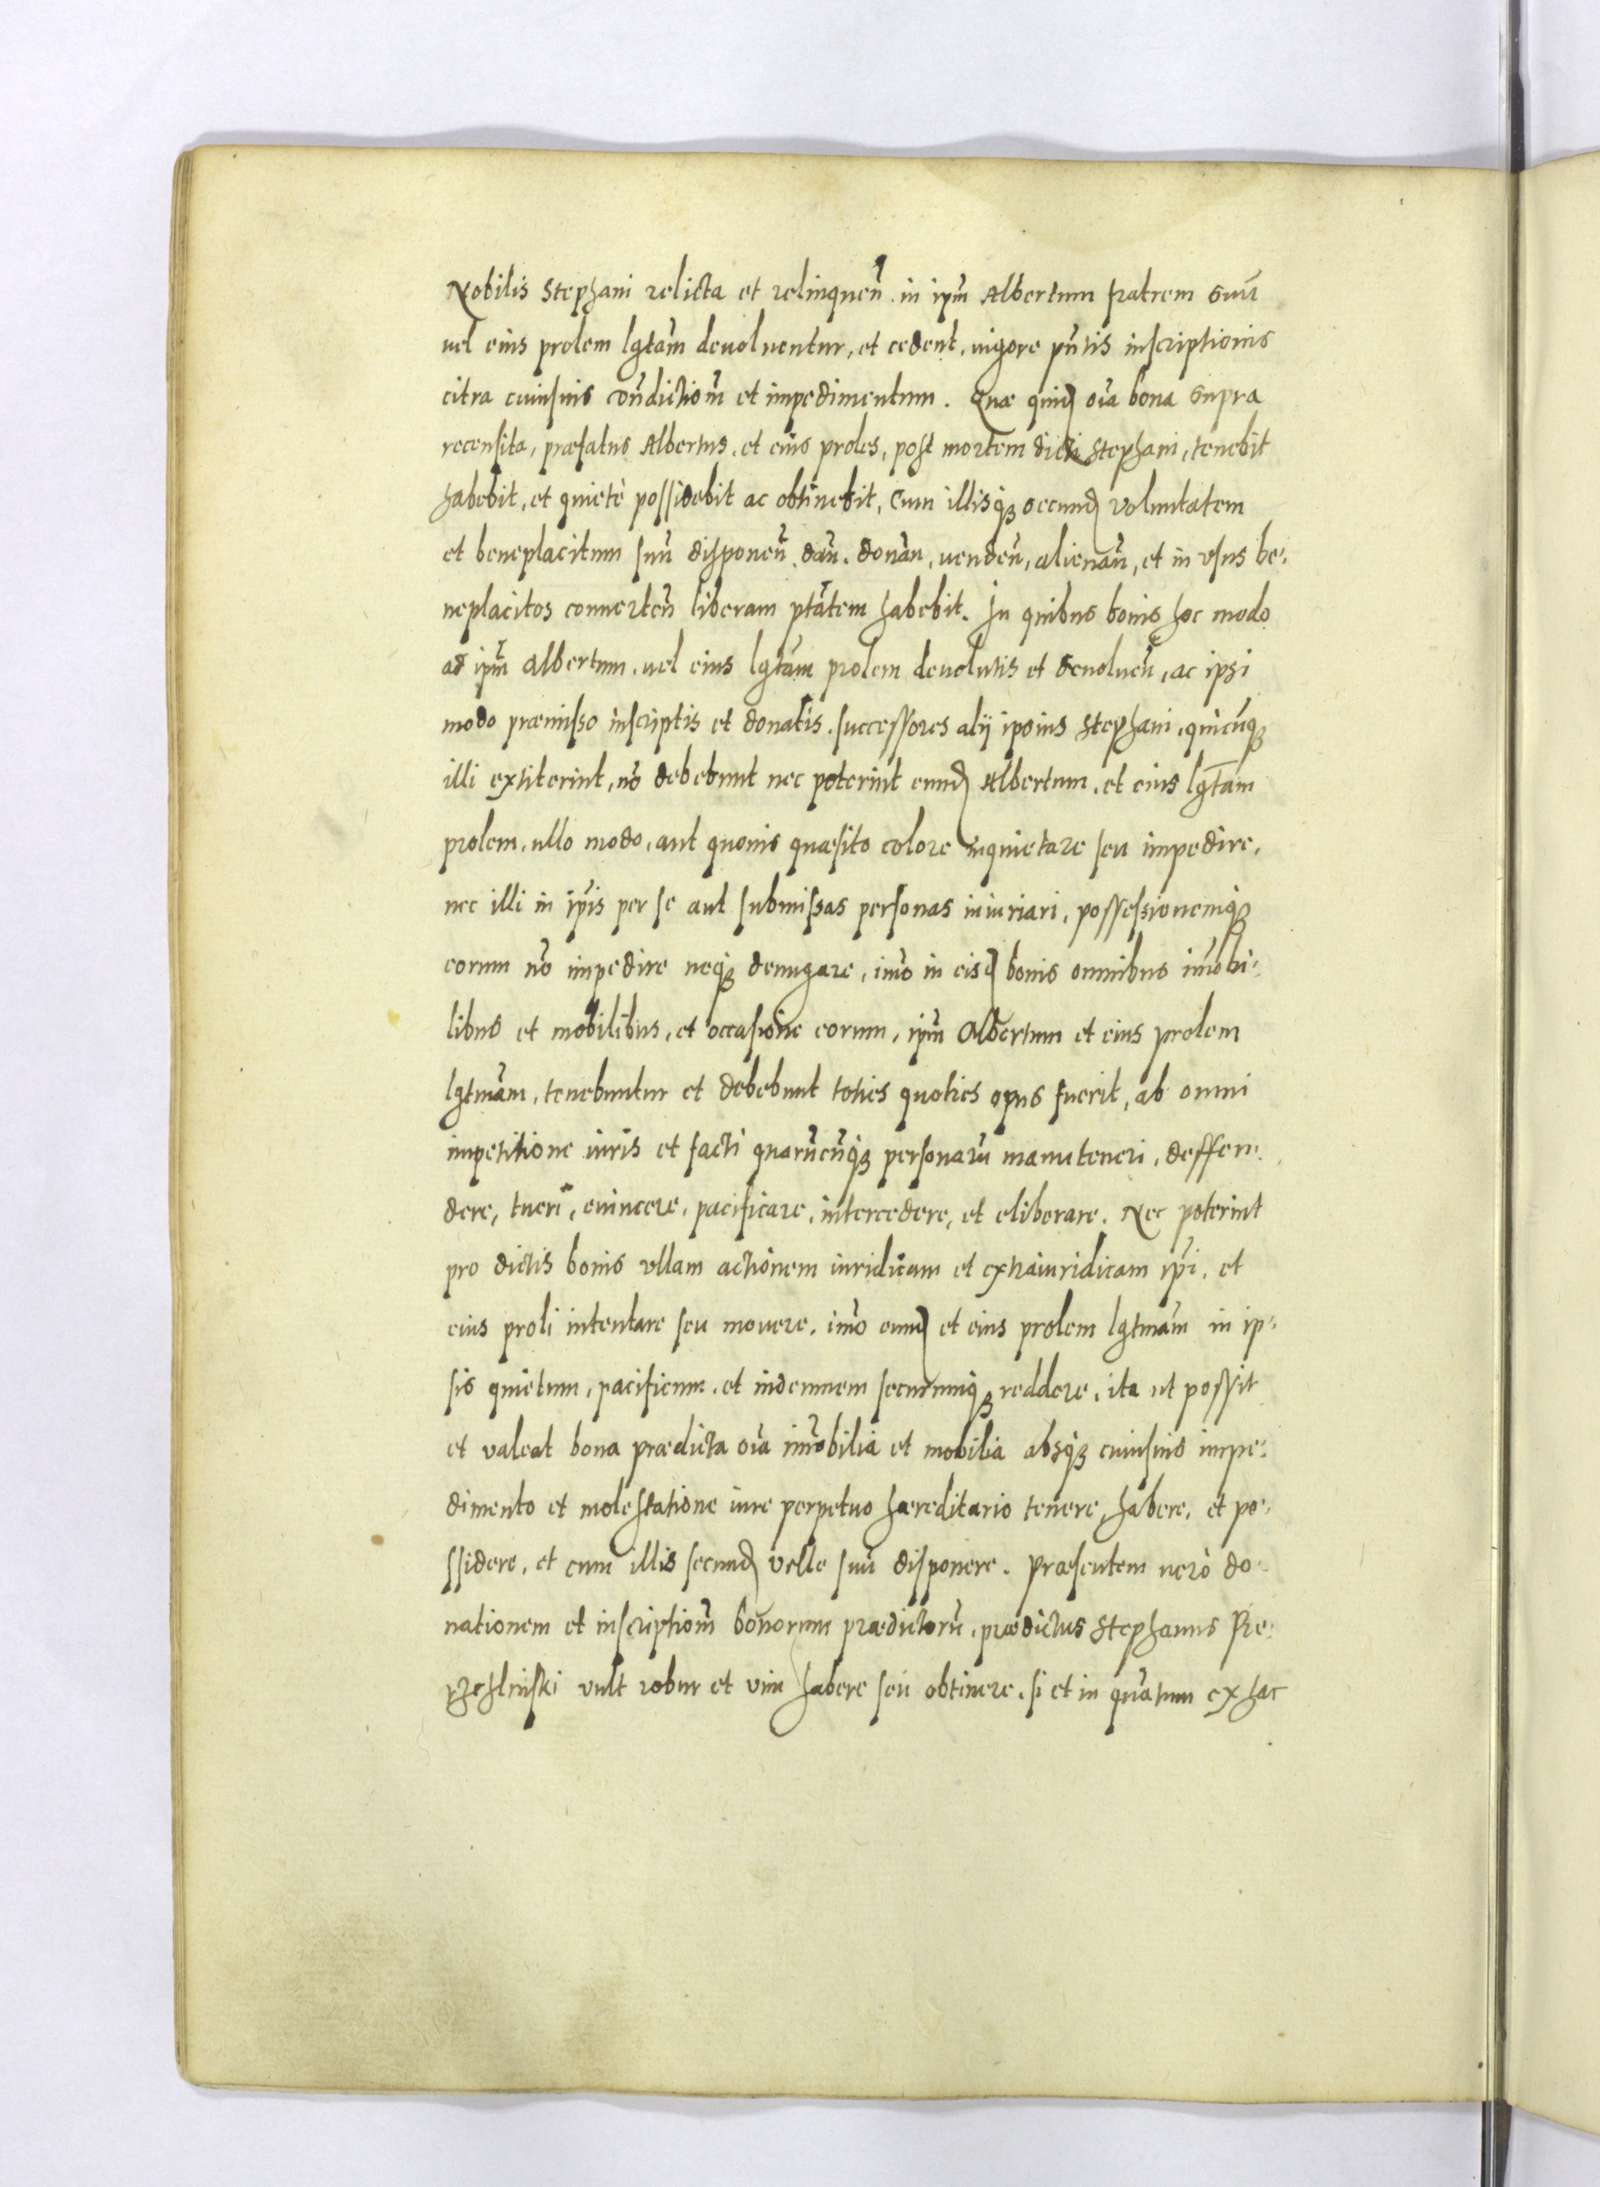 Nobilis Stephani relicta et relinqueñ. in ipm̃ Albertum fratrem suũ
uel eius prolem lgtãm deuoluentur, et cedent, uigore pñtis inscriptionis
citra cuiusuis cõndictioñ et impedimentum. Quæ quid[em] oĩa bona supra
recensita, præfatus Albertus, et eius proles, post mortem dicti Stephani, tenebit
habebit, et quietè possidebit ac obtinebit, Cum illisq; secund[um] voluntatem
et beneplacitum suũ disponeñ. dañ. donañ, uendeñ, alienañ, et in vsus be-
neplacitos conuerteñ liberam ptãtem habebit. In quibus bonis hoc modo
ad ipm̃ Albertum, uel eius lgtãm prolem deuolutis et deuolueñ, ac ipsi
modo præmisso inscriptis et donatis, successores alij ipsius Stephani, quicũq;
illi extiterint, nõ debebunt nec poterint eund[em] Albertum, et eius lgtãm
prolem, ullo modo, aut quouis quæsito colore inquietare seu impedire,
nec illi in ip̃is per se aut submissas personas iniuriari, possessionemq;
eorum nõ impedire neq; denigare, imõ in eisd[em] bonis omnibus im̃obi-
libus et mobilibus, et occasione eorum, ipm̃ Albertum et eius prolem
lgtmãm, tenebuntur et debebunt toties quoties opus fuerit, ab omni
impetitione iuris et facti quarũcũq; personarũ manuteneri, deffen-
dere, tueri, euincere, pacificare, intercedere, et eliberare. Nec poterint
pro dictis bonis vllam actionem iuridicam et extraiuridicam ip̃i, et
eius proli intentare seu mouere, imõ eund[em] et eius prolem lgtmãm in ip-
sis quietum, pacificum, et indemnem securumq; reddere, ita ut possit
et valeat bona prædicta oĩa im̃obilia et mobilia absq; cuiusuis impe-
dimento et molestatione iure perpetuo hæreditario tenere, habere, et po-
ssidere, et cum illis secund[um] velle suũ disponere. Præsentem uerò do-
nationem et inscriptioñ bonorum prædictorũ, prædictus Stephanus Pie-
rzchliński vult robur et vim habere seu obtinere, si et in quãtum ex hac